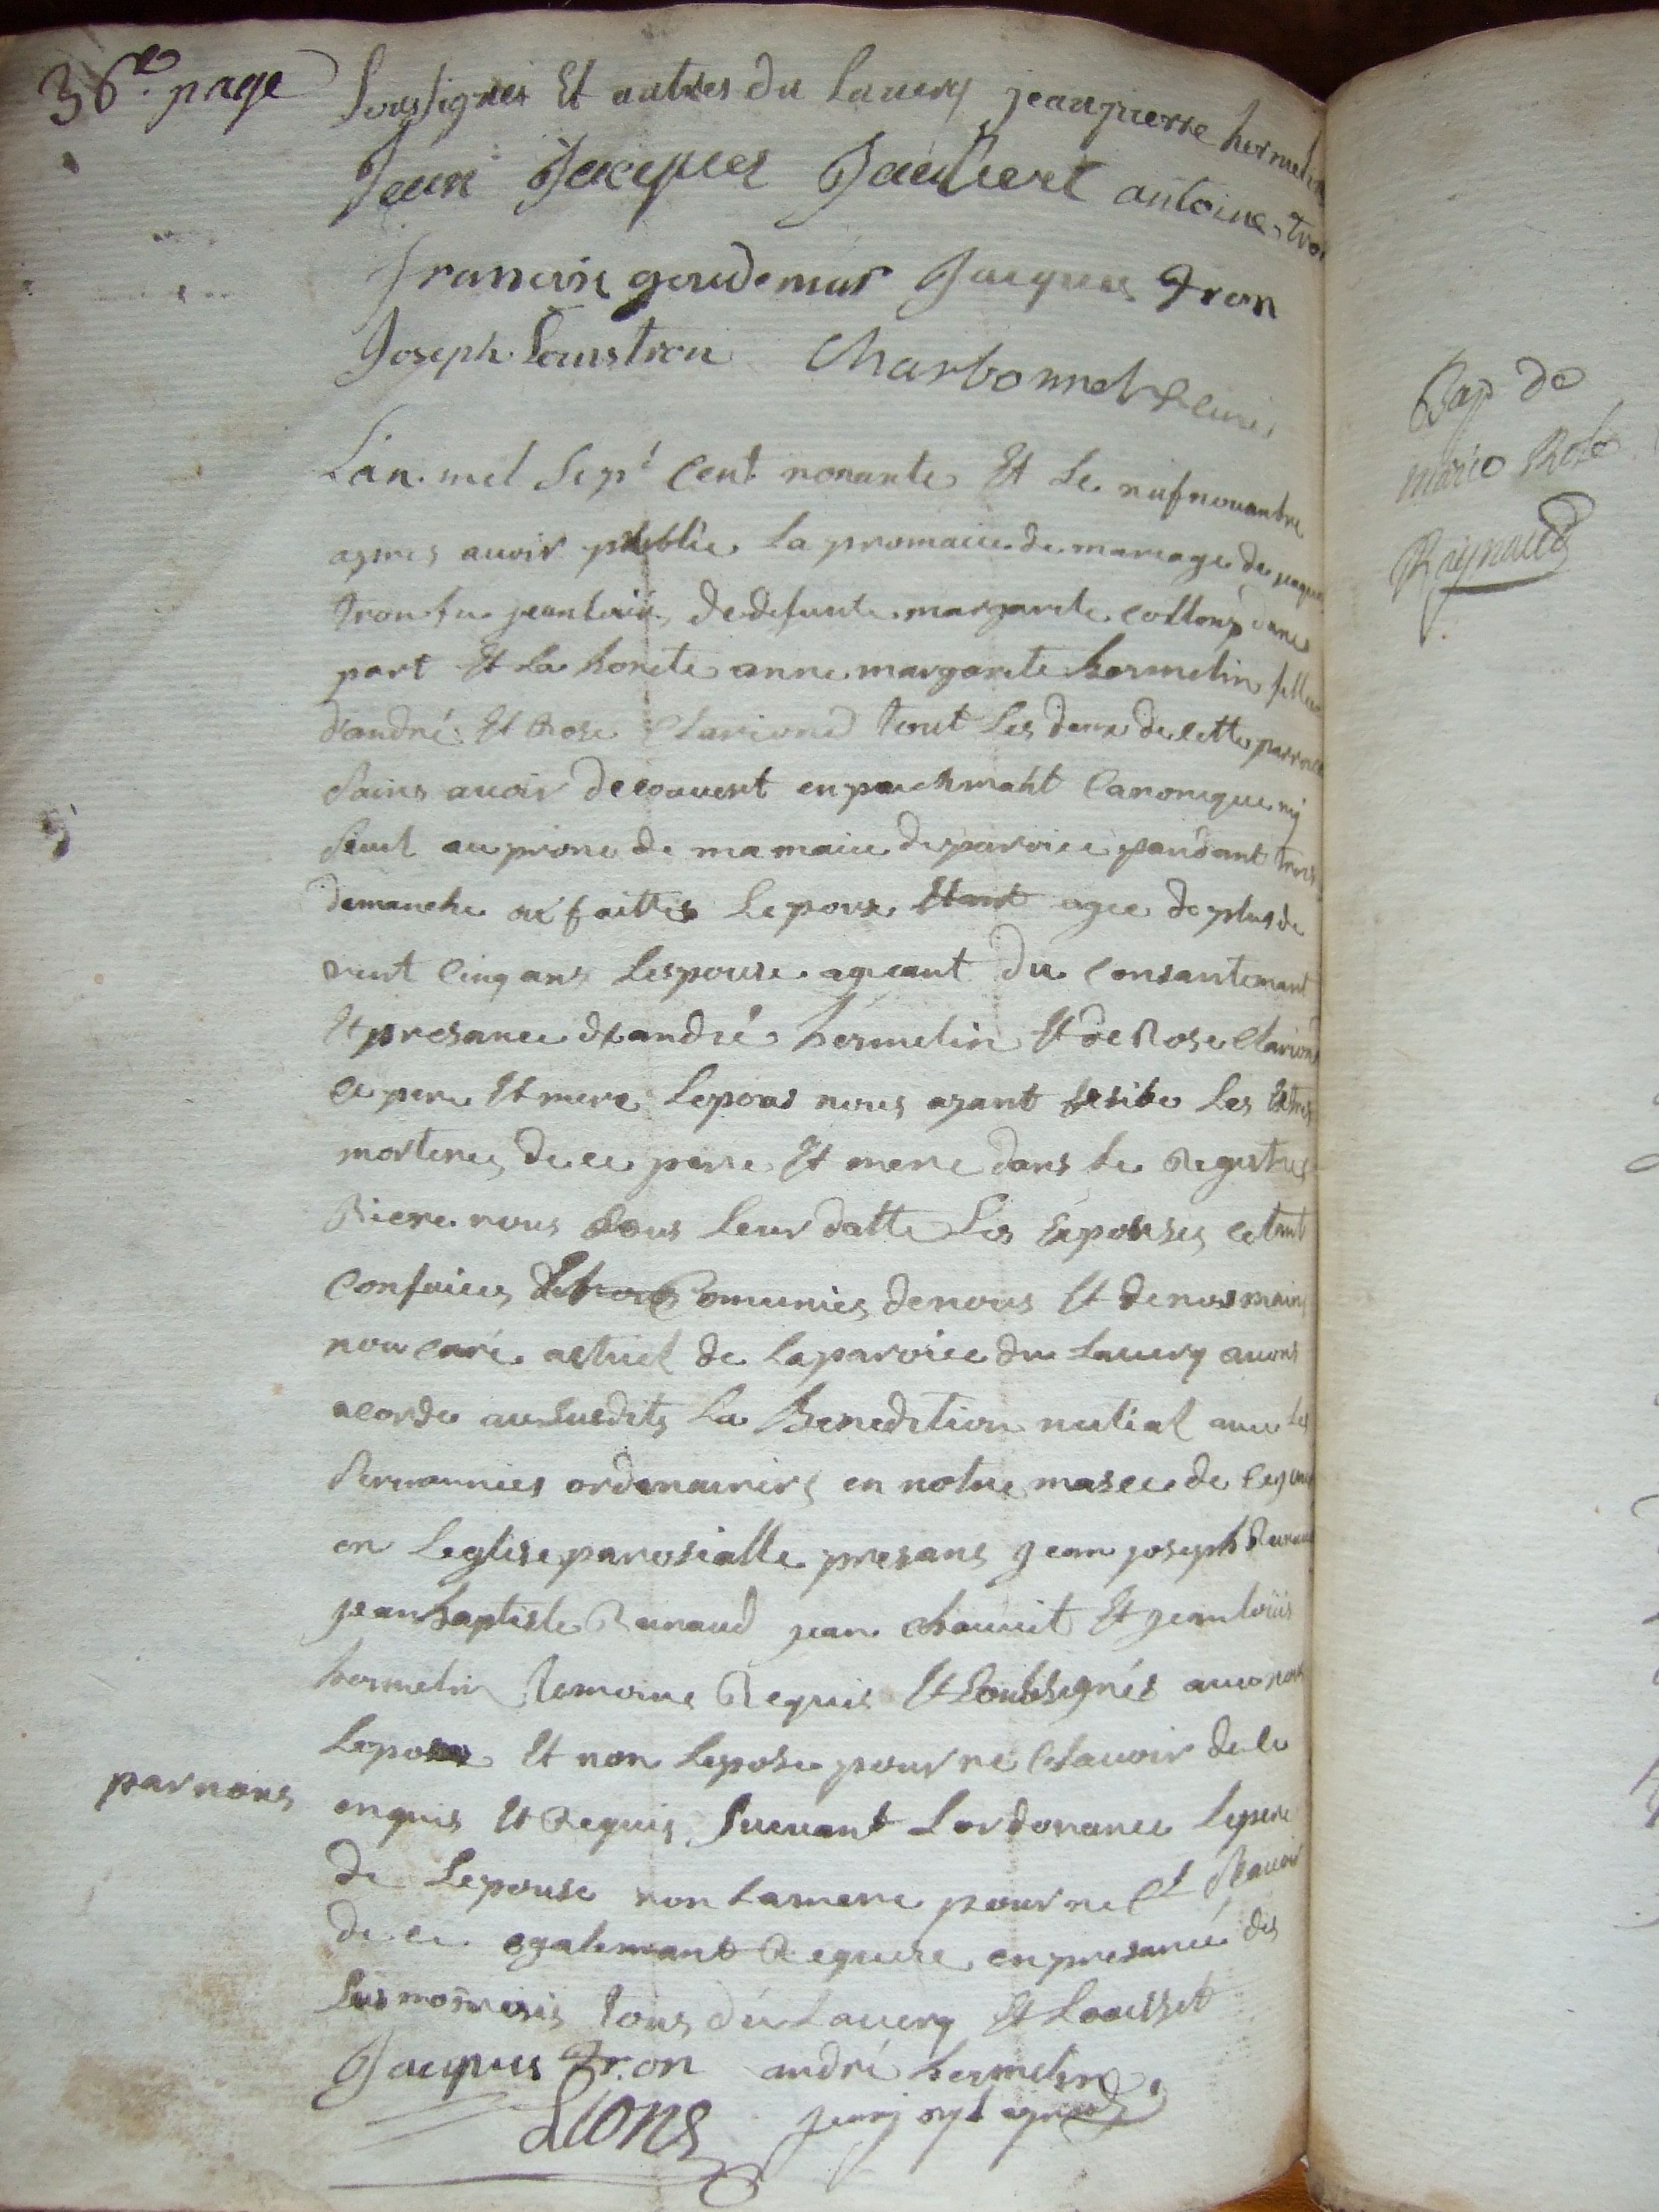 36e. page
soussignés Et autres du Lauerq jean pierre hermelin
Jean Jacques Jaubert antoine tron
francois goudemar Jacques Tron
Joseph Louis tron Charbonnel
Lan mil sept Cent nonante Et Le nuf nouanbre
apres auoir publie La promaice de mariage de jaque
Tron fu jean louis, de defunte margarite collomp dune
part Et La honete anne margarite hermelin fille
d'andré Et Rose Clariond tout Les deux de cette parroice
sains auoir decouuert enpaichmaht Canonique ny
siuil au prone de ma maice de paroice pandant trois
demanche ox faittes Lepoux Etant agee de plus de
vint Cinq ans Lespouse ageant du Consantemant
Et presance de andré hermelin Et de Rose Clariond
ce pere Et mere Lepous nous ayant Les
morteres de ce pere Et mere dans Le Registres
Riere nous sous Leur datte Les Epouses etant
Confaices Comunies de nous Et de nos mains
nou curé actuel de La paroice du Lauerq auons
acorde au susdits La Benedition nutial auec Les
seremonnies ordenaireirs en notre masce de ce jour
en Leglise parosialle presans jean joseph Renaud
jean baptiste Renaud jean chauuit Et jean louis
hermelin temoins Requis Et soubsignés auec nous
Lepoux Et non Lepose pour ne sauoir de le
par nous
enquis Et Requis suiuant Lordonance Lepere
de Lepouse non La mere pour ne sauoir
de ce egalemant Requise en presance des
susnommés tous du Lauerq Et Lausset
Jacques Tron andré hermelin
Lions
Bap de
marie Rose
Reynaud